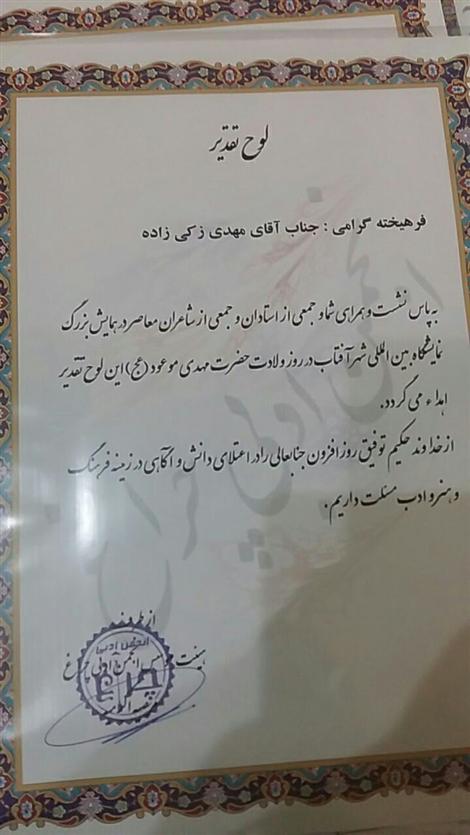 لوح تقدیر
فرهیخته گرامی : جناب آقای مهدی زکی زاده
به پاس نشست و همراهی شما و جمعی از استادان و جمعی از شاعران معاصر در همایش بزرگ
نمایشگاه بین المللی شهر آفتاب در روز ولادت حضرت مهدی موعود (عج) این لوح تقدیر
اهداء می گردد.
از خداوند حکیم توفیق روز افزون جنابعالی را در اعتلای دانش و آگاهی در زمینه فرهنگ
و هنر و ادب مسئلت داریم.
از طرف
هیئت انجمن ادبی چراغ
انجمن ادبی
چراغ
انجمن ادبی چراغ